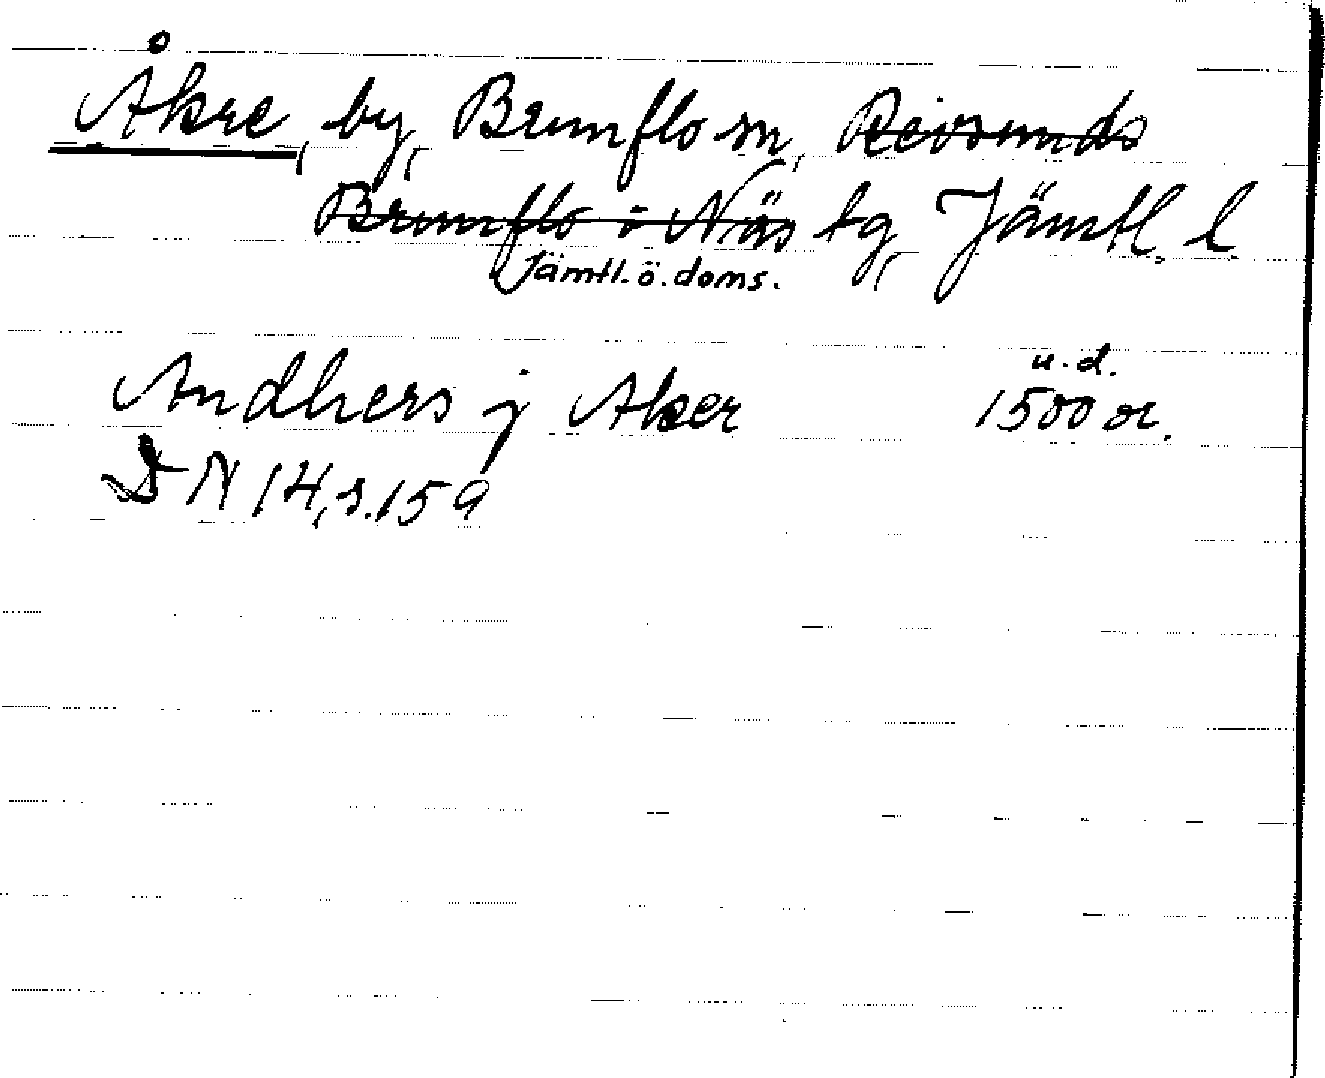 Åkre, by, Brunflo sn, Revsunds
Brunflo o Näs tg, Jämtl. l.
Jämtl. ö. doms.
u. d.
Andhers j Aker 1500 or.
DN 14, s. 159